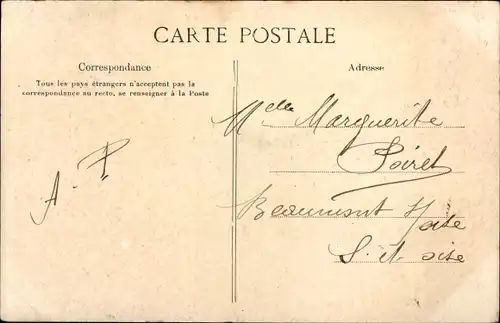 CARTE POSTALE
Correspondance
Tous les pays étrangers n'acceptent pas la
correspondance au recto, se renseigner à la Poste
A. P.
Adresse
Melle Marguerite
Poiret
Beaumont s/oise
S. et oise